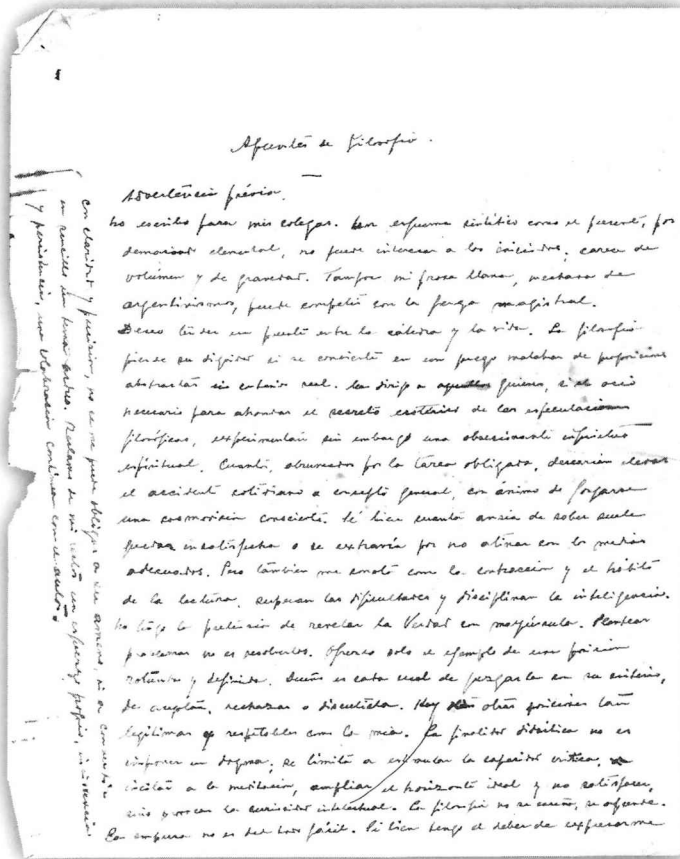 Apuntes de Filosofia.
Advertencia prévia.
No escribo para mis colegas. Un esquema sintético como el presente, por
demasiado elemental, no puede interesar a los iniciados; carece de
volúmen y de gravedad. Tampoco mi prosa llana, mechada de
argentinismos, puede competir con la jerga magistral.
Deseo tender un puente entre la cátedra y la vida. La filosofia
pierde su dignidad si se convierte en un juego malabar de proposiciones
abstractas sin contenido real. La dirijo a aquellos quienes, sin el ocio
necesario para ahondar el secreto esotérico de las especulaciones
filosóficas, experimentan sin embargo una obsesionante inquietud
espiritual. Cuantos, abrumados por la tarea obligada, desearían elevar
el accidente cotidiano a concepto general, con ánimo de forjarse
una cosmovisión consciente. Sé bien cuanta ansia de saber suele
quedar insatisfecha o se extravía por no atinar con los medios
adecuados. Pero también me consta como la contracción y el hábito
de la lectura, superan las dificultades y disciplinan la inteligencia.
No tengo la pretensión de revelar la Verdad con mayúscula. Plantear
problemas no es resolverlos. Ofrezco solo el ejemplo de una posición
rotunda y definida. Dueño es cada cual de juzgarla con su criterio,
de aceptarla, rechazarla o discutirla. Hay otras posiciones tan
legítimas y respetables como la mia. La finalidad didáctica no es
imponer un dogma; se limita a estimular la capacidad crítica,
incitar a la meditación, ampliar el horizonte ideal y no satisfacer,
sino provocar la curiosidad intelectual. La filosofia no se enseña, se aprende.
La empresa no es del todo fácil. Si bien tengo el deber de expresarme
con claridad y precisión, no se me puede obligar a ser ameno, ni a convertir
en sencillo un tema arduo. Reclamo de mi lector un esfuerzo propio, insistencia
y persistencia, una elaboración continua con el autor.